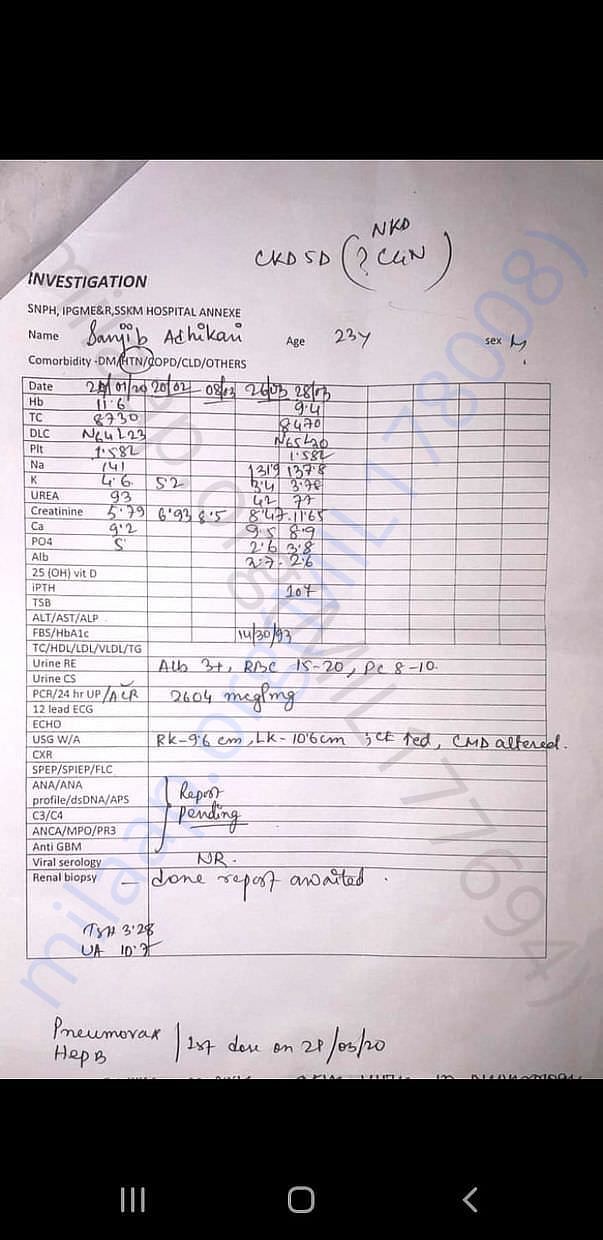 NKD
CKD5D (? CGN)
INVESTIGATION
SNPH, IPGME&R,SSKM HOSPITAL ANNEXE
Name Sanjib Adhikari Age 23y sex M
Comorbidity -DM/HTN/COPD/CLD/OTHERS
Date 29/01/20 20/02 08/03 26/03 28/03
Hb 11.6 9.4
TC 8730 8470
DLC N64L23 N65L20
Plt 1.582 1.582
Na 141 131.9 137.8
K 4.6 5.2 3.4 3.78
UREA 93 42 77
Creatinine 5.79 6.93 8.5 8.47 11.65
Ca 9.2 9.5 8.9
PO4 5 2.6 3.8
Alb 2.7 2.6
25 (OH) vit D
iPTH 107
TSB
ALT/AST/ALP 14/30/93
FBS/HbA1c
TC/HDL/LDL/VLDL/TG
Urine RE Alb 3+, RBC 15-20, PC 8-10.
Urine CS
PCR/24 hr UP/ACR 2604 mcg/mg
12 lead ECG
ECHO
USG W/A RK-9.6 cm, LK-10.6 cm ; CE ↑ed, CMD altered.
CXR
SPEP/SPIEP/FLC
ANA/ANA
profile/dsDNA/APS Report
C3/C4 pending
ANCA/MPO/PR3
Anti GBM
Viral serology NR.
Renal biopsy — done report awaited.
TSH 3.28
UA 10.7
Pneumovax
Hep B | 1st dose on 28/03/20
milaap.org(MIL178008)
milaap.org(MIL177694)